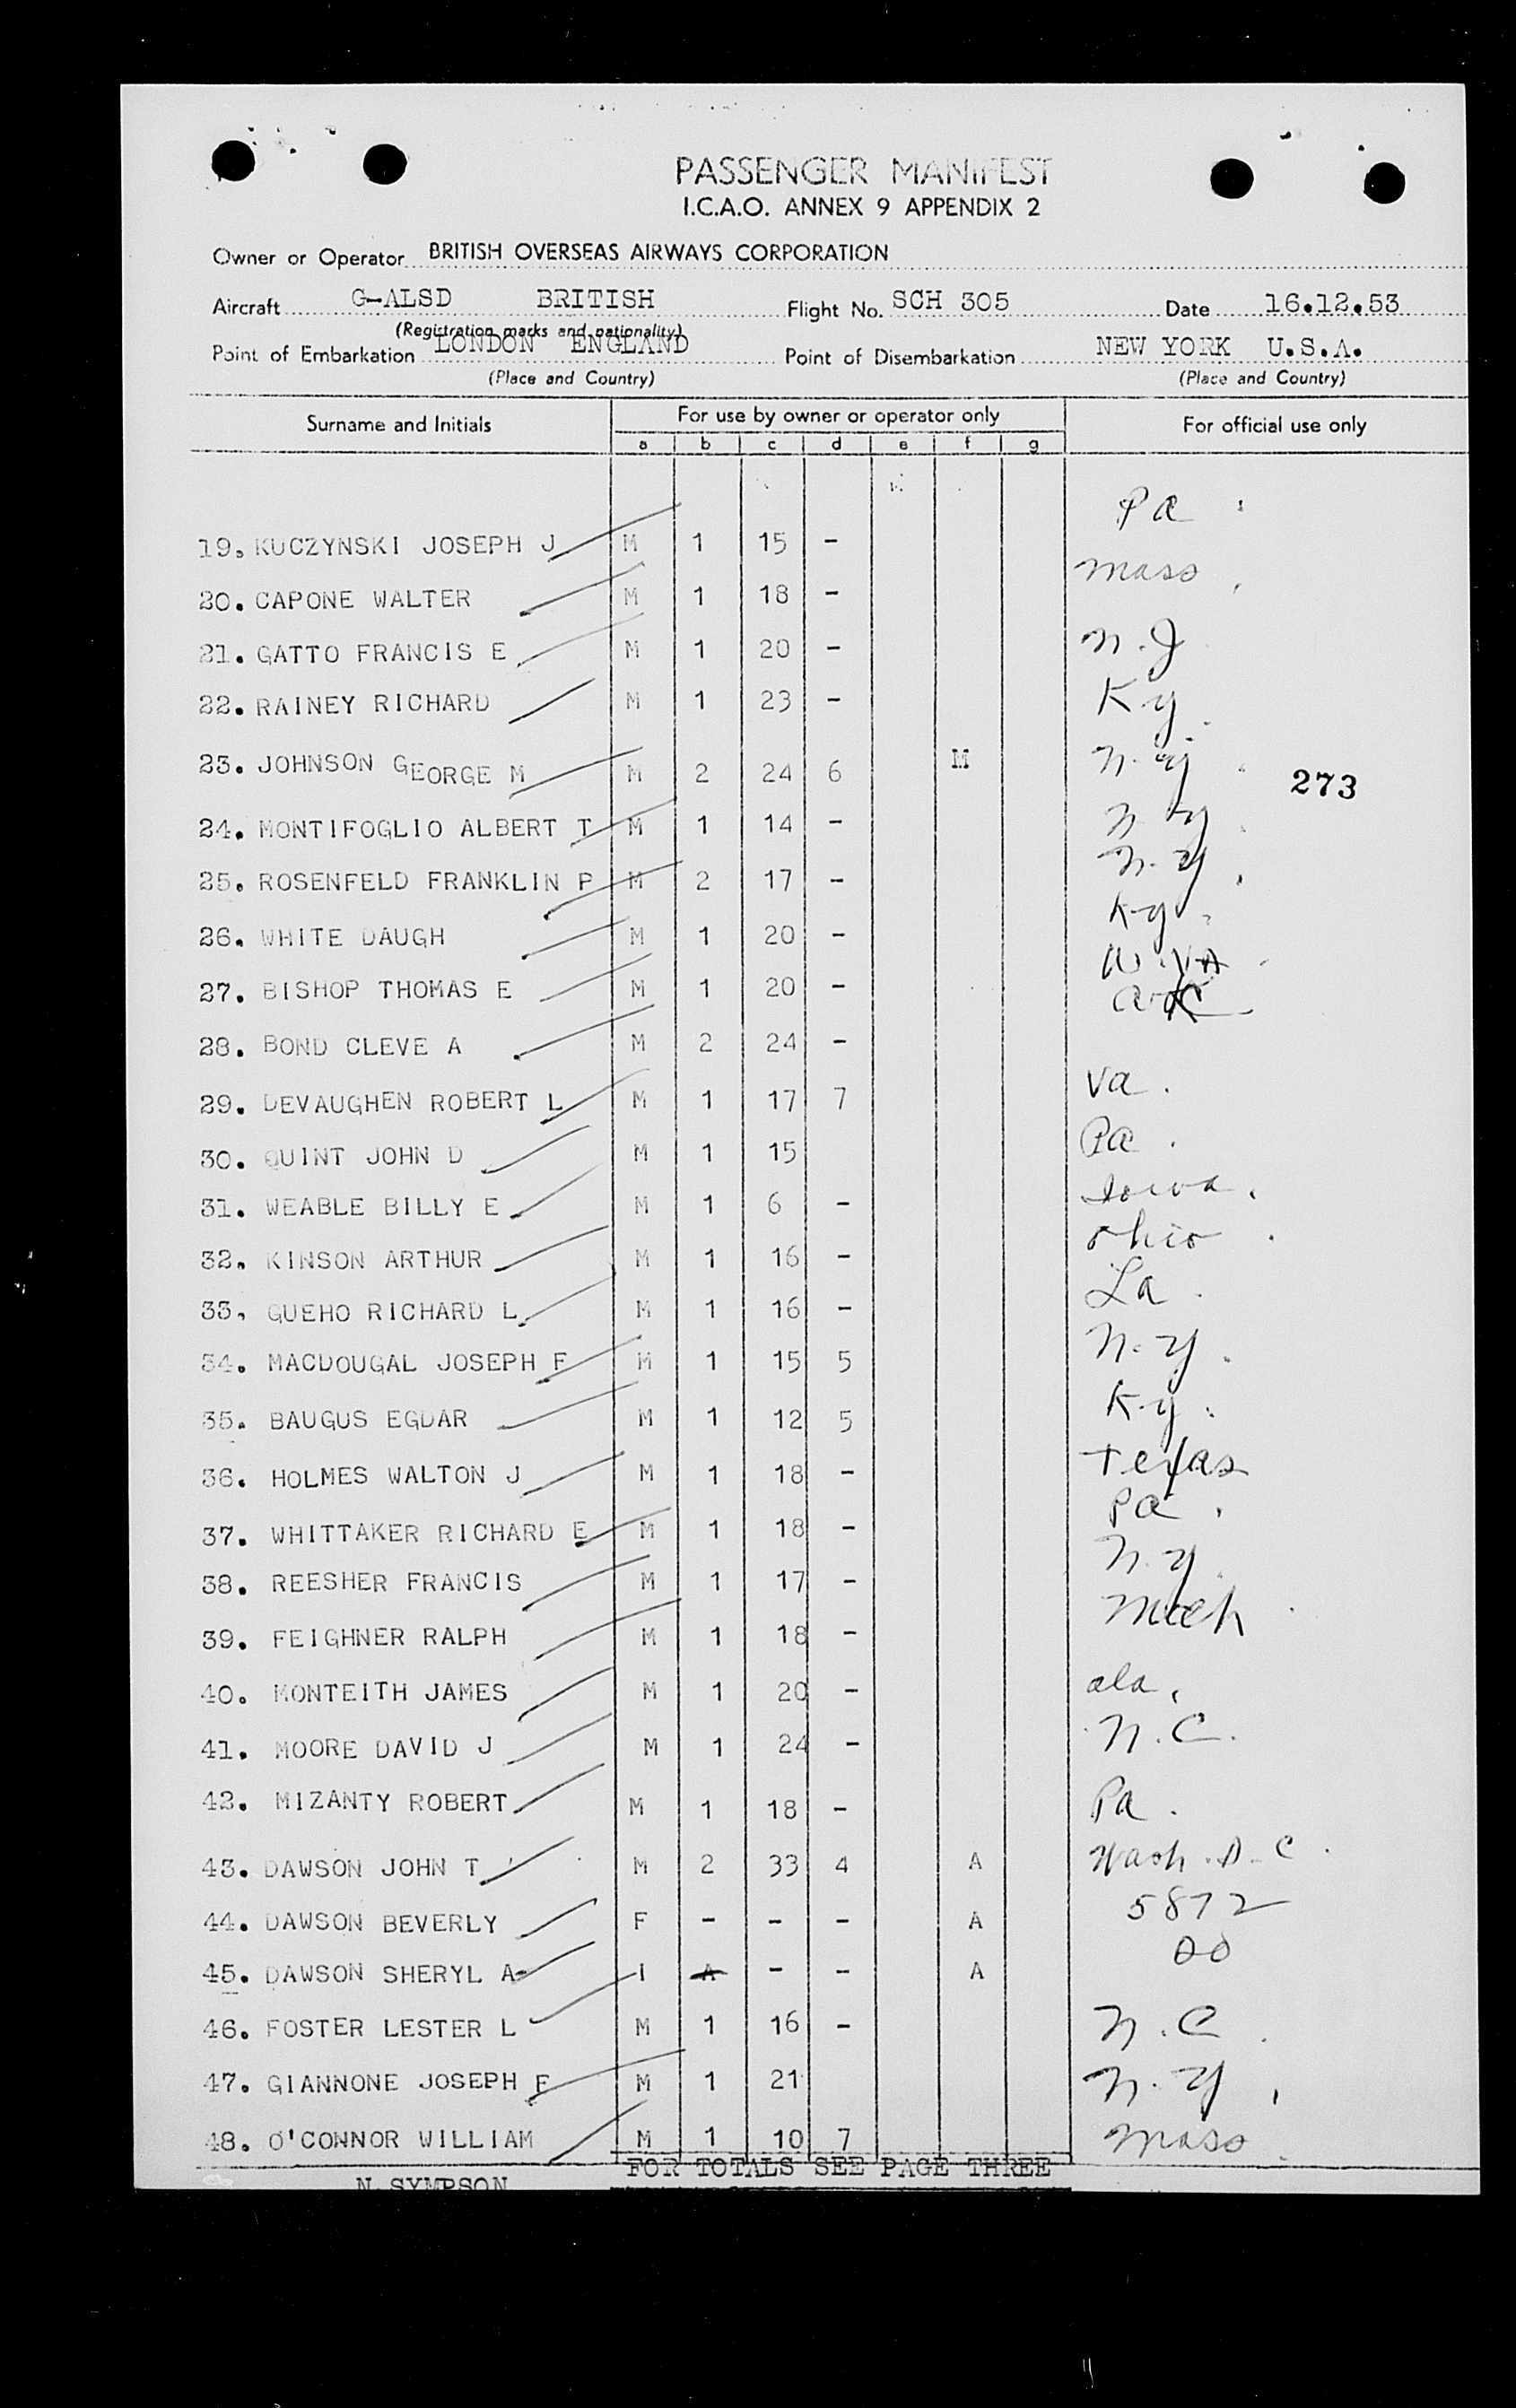 PASSENGER MANIFEST
I.C.A.O. ANNEX 9 APPENDIX 2
Owner or Operator BRITISH OVERSEAS AIRWAYS CORPORATION
Aircraft G-ALSD BRITISH Flight No. SCH 305 Date 16.12.53
(Registration marks and nationality)
Point of Embarkation LONDON ENGLAND Point of Disembarkation NEW YORK U.S.A.
(Place and Country) (Place and Country)
Surname and Initials For use by owner or operator only For official use only
a b c d e f g
19. KUCZYNSKI JOSEPH J M 1 15 - Pa
20. CAPONE WALTER M 1 18 - Mass
21. GATTO FRANCIS E M 1 20 - N.J
22. RAINEY RICHARD M 1 23 - Ky
23. JOHNSON GEORGE M M 2 24 6 M N.y
273
24. MONTIFOGLIO ALBERT T M 1 14 - N.y
25. ROSENFELD FRANKLIN P M 2 17 - N.y
26. WHITE DAUGH M 1 20 - Ky
27. BISHOP THOMAS E M 1 20 - W.VA
28. BOND CLEVE A M 2 24 - ark
29. DEVAUGHEN ROBERT L M 1 17 7 Va.
30. QUINT JOHN D M 1 15 Pa.
31. WEABLE BILLY E M 1 6 - Iowa.
32. KINSON ARTHUR M 1 16 - Ohio
33. GUEHO RICHARD L M 1 16 - La
34. MACDOUGAL JOSEPH F M 1 15 5 N.y.
35. BAUGUS EGDAR M 1 12 5 Ky.
36. HOLMES WALTON J M 1 18 - Texas
37. WHITTAKER RICHARD E M 1 18 - Pa.
38. REESHER FRANCIS M 1 17 - N.y
39. FEIGHNER RALPH M 1 18 - Mich
40. MONTEITH JAMES M 1 20 - ala.
41. MOORE DAVID J M 1 24 - N.C.
42. MIZANTY ROBERT M 1 18 - Pa.
43. DAWSON JOHN T M 2 33 4 A Wash. D.C.
44. DAWSON BEVERLY F - - - A 5872
45. DAWSON SHERYL A I A - - A
46. FOSTER LESTER L M 1 16 - N.C
47. GIANNONE JOSEPH F M 1 21 N.y
48. O'CONNOR WILLIAM M 1 10 7 Mass
FOR TOTALS SEE PAGE THREE
N. SYMPSON